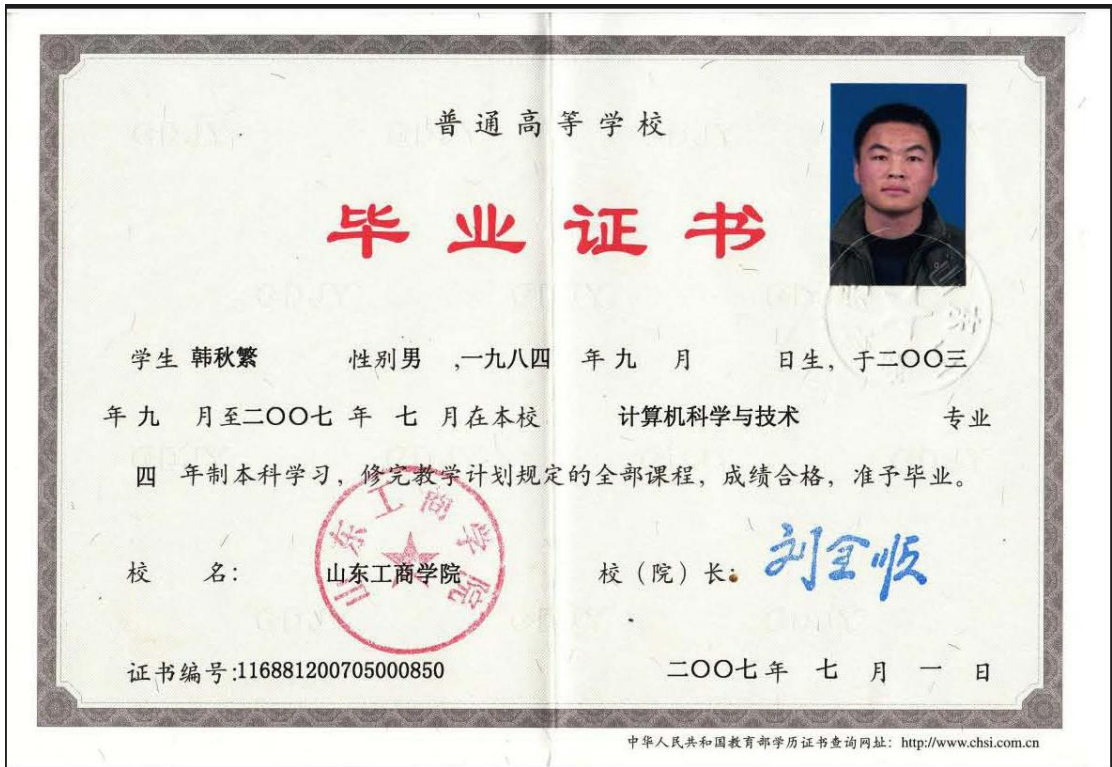 普通高等学校
毕业证书
学生 韩秋繁 性别 男 ,一九八四 年 九 月 日生，于二〇〇三
年 九 月至二〇〇七 年 七 月在本校 计算机科学与技术 专业
四 年制本科学习，修完教学计划规定的全部课程，成绩合格，准予毕业。
山东工商学院
校 名： 山东工商学院 校（院）长： 刘全顺
证书编号:116881200705000850 二〇〇七年 七 月 一 日
中华人民共和国教育部学历证书查询网址：http://www.chsi.com.cn